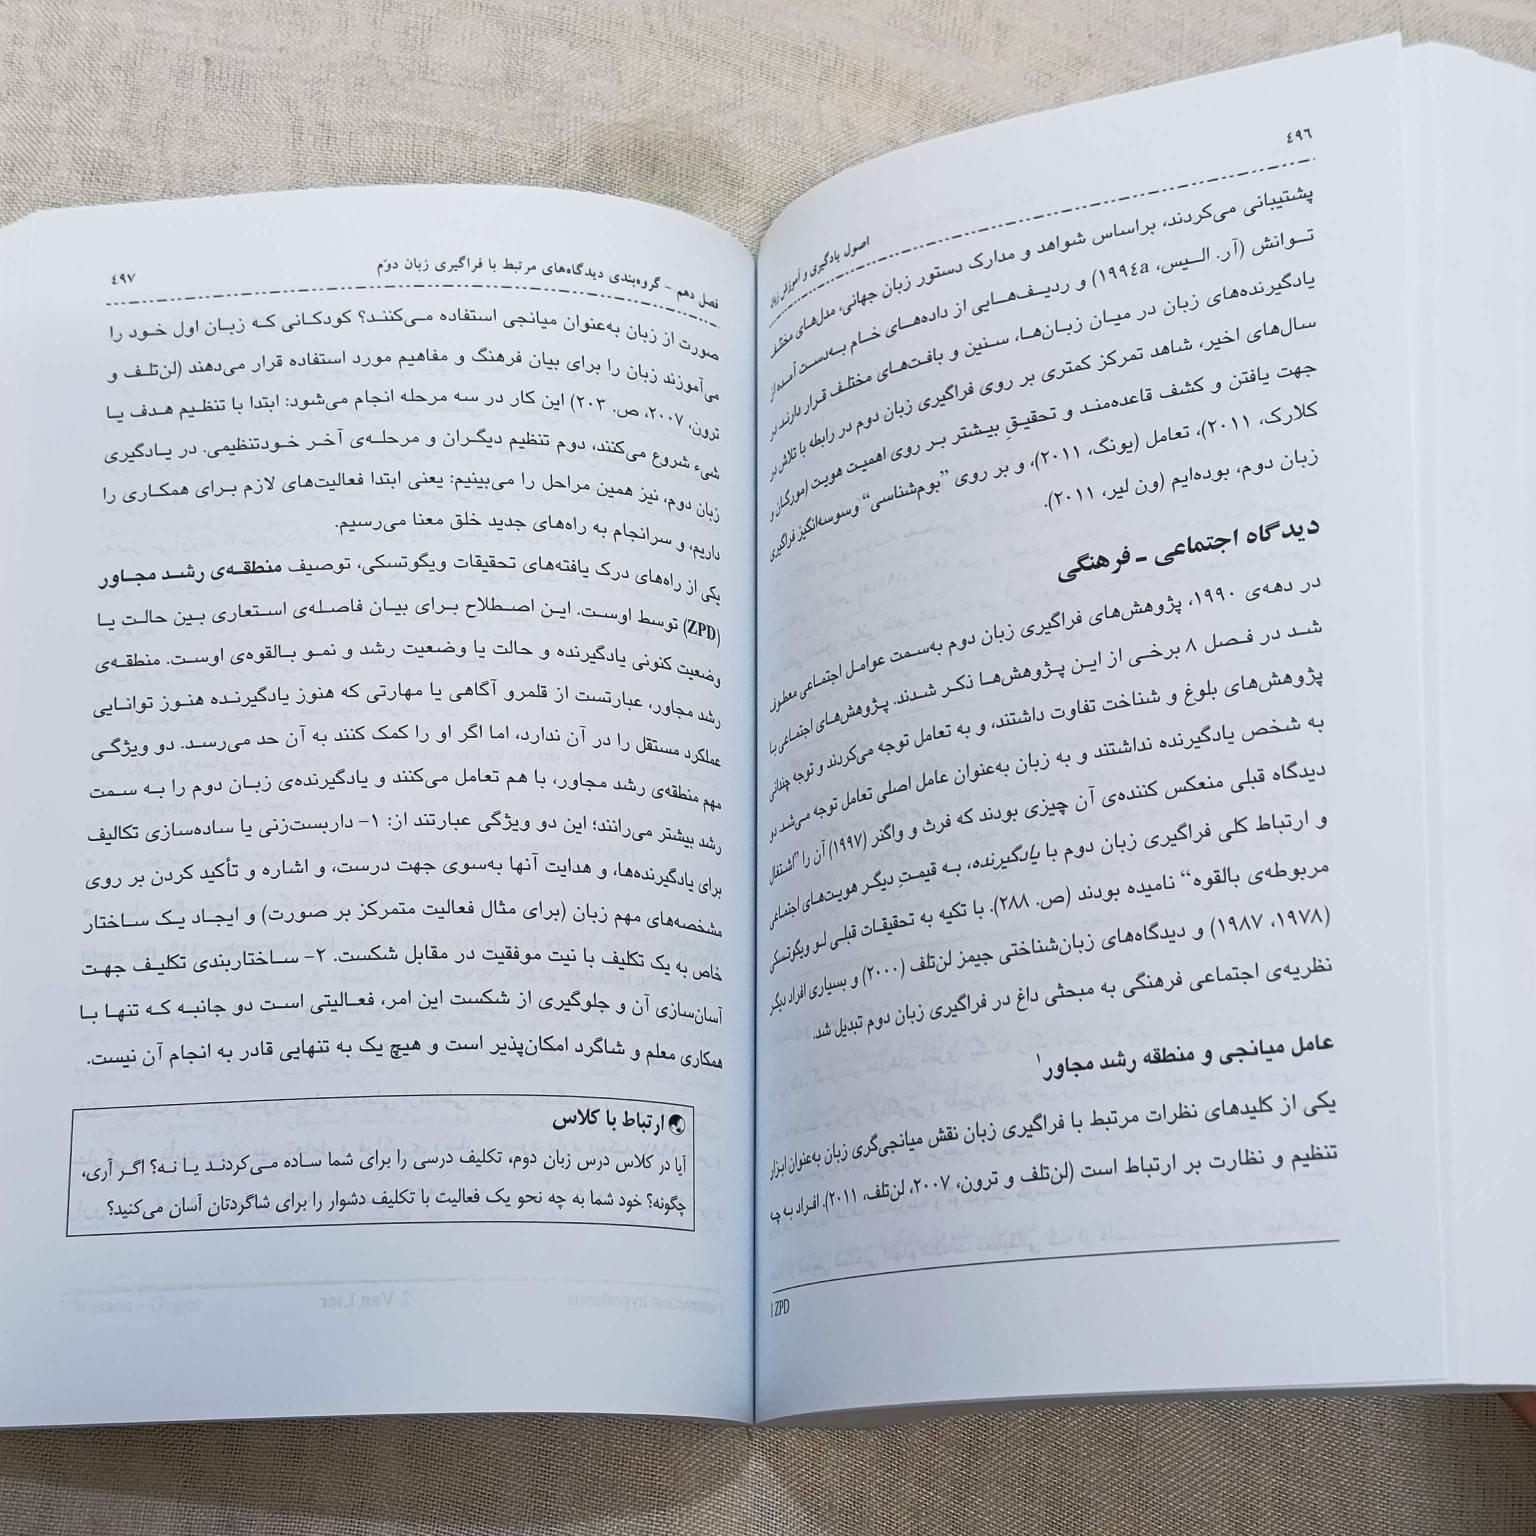 ٤٩٦
اصول یادگیری و آموزش زبان
پشتیبانی می‌کردند، براساس شواهد و مدارک دستور زبان جهانی، مدل‌های مختلف
توانش (آر. الیس، ١٩٩٤a) و ردیف‌هایی از داده‌های خام به‌دست آمده از
یادگیرنده‌های زبان در میان زبان‌ها، سنین و بافت‌های مختلف قرار دارند. در
سال‌های اخیر، شاهد تمرکز کمتری بر روی فراگیری زبان دوم در رابطه با تلاش در
جهت یافتن و کشف قاعده‌مند و تحقیقِ بیشتر بر روی اهمیت هویت (مورگان و
کلارک، ٢٠١١)، تعامل (یونگ، ٢٠١١)، و بر روی "بوم‌شناسی" وسوسه‌انگیز فراگیری
زبان دوم، بوده‌ایم (ون لیر، ٢٠١١).
دیدگاه اجتماعی - فرهنگی
در دهه‌ی ١٩٩٠، پژوهش‌های فراگیری زبان دوم به‌سمت عوامل اجتماعی معطوف
شد در فصل ٨ برخی از این پژوهش‌ها ذکر شدند. پژوهش‌های اجتماعی با
پژوهش‌های بلوغ و شناخت تفاوت داشتند، و به تعامل توجه می‌کردند و توجه چندانی
به شخص یادگیرنده نداشتند و به زبان به‌عنوان عامل اصلی تعامل توجه می‌شد. دو
دیدگاه قبلی منعکس کننده‌ی آن چیزی بودند که فرث و واگنر (١٩٩٧) آن را "اشتغال
و ارتباط کلی فراگیری زبان دوم با یادگیرنده، به قیمتِ دیگر هویت‌های اجتماعی
مربوطه‌ی بالقوه" نامیده بودند (ص. ٢٨٨). با تکیه به تحقیقات قبلی لو ویگوتسکی
(١٩٧٨، ١٩٨٧) و دیدگاه‌های زبان‌شناختی جیمز لن‌تلف (٢٠٠٠) و بسیاری افراد دیگر
نظریه‌ی اجتماعی فرهنگی به مبحثی داغ در فراگیری زبان دوم تبدیل شد.
عامل میانجی و منطقه رشد مجاور١
یکی از کلیدهای نظرات مرتبط با فراگیری زبان نقش میانجی‌گری زبان به‌عنوان ابزار
تنظیم و نظارت بر ارتباط است (لن‌تلف و ترون، ٢٠٠٧، لن‌تلف، ٢٠١١). افراد به چه
1 ZPD
فصل دهم - گروه‌بندی دیدگاه‌های مرتبط با فراگیری زبان دوّم ٤٩٧
صورت از زبان به‌عنوان میانجی استفاده می‌کنند؟ کودکانی که زبان اول خود را
می‌آموزند زبان را برای بیان فرهنگ و مفاهیم مورد استفاده قرار می‌دهند (لن‌تلف و
ترون، ٢٠٠٧، ص. ٢٠٣) این کار در سه مرحله انجام می‌شود: ابتدا با تنظیم هدف یا
شیء شروع می‌کنند، دوم تنظیم دیگران و مرحله‌ی آخر خودتنظیمی. در یادگیری
زبان دوم، نیز همین مراحل را می‌بینیم: یعنی ابتدا فعالیت‌های لازم برای همکاری را
داریم، و سرانجام به راه‌های جدید خلق معنا می‌رسیم.
یکی از راه‌های درک یافته‌های تحقیقات ویگوتسکی، توصیف منطقه‌ی رشد مجاور
(ZPD) توسط اوست. این اصطلاح برای بیان فاصله‌ی استعاری بین حالت یا
وضعیت کنونی یادگیرنده و حالت یا وضعیت رشد و نمو بالقوه‌ی اوست. منطقه‌ی
رشد مجاور، عبارتست از قلمرو آگاهی یا مهارتی که هنوز یادگیرنده هنوز توانایی
عملکرد مستقل را در آن ندارد، اما اگر او را کمک کنند به آن حد می‌رسد. دو ویژگی
مهم منطقه‌ی رشد مجاور، با هم تعامل می‌کنند و یادگیرنده‌ی زبان دوم را به سمت
رشد بیشتر می‌رانند؛ این دو ویژگی عبارتند از: ١- داربست‌زنی یا ساده‌سازی تکالیف
برای یادگیرنده‌ها، و هدایت آنها به‌سوی جهت درست، و اشاره و تأکید کردن بر روی
مشخصه‌های مهم زبان (برای مثال فعالیت متمرکز بر صورت) و ایجاد یک ساختار
خاص به یک تکلیف با نیت موفقیت در مقابل شکست. ٢- ساختاربندی تکلیف جهت
آسان‌سازی آن و جلوگیری از شکست این امر، فعالیتی است دو جانبه که تنها با
همکاری معلم و شاگرد امکان‌پذیر است و هیچ یک به تنهایی قادر به انجام آن نیست.
ارتباط با کلاس
آیا در کلاس درس زبان دوم، تکلیف درسی را برای شما ساده می‌کردند یا نه؟ اگر آری،
چگونه؟ خود شما به چه نحو یک فعالیت با تکلیف دشوار را برای شاگردتان آسان می‌کنید؟